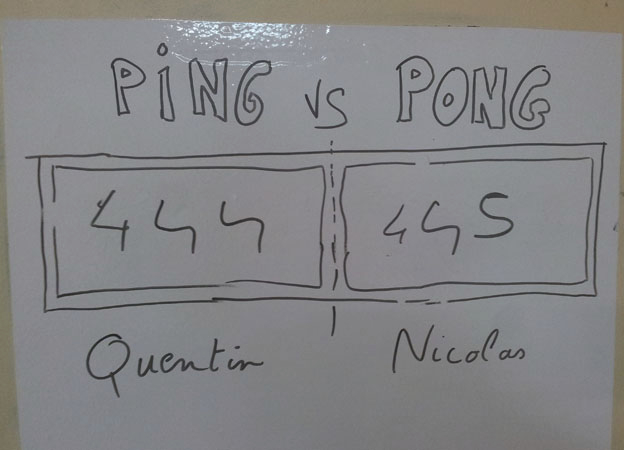 PiNG vs PONG
444 445
Quentin Nicolas